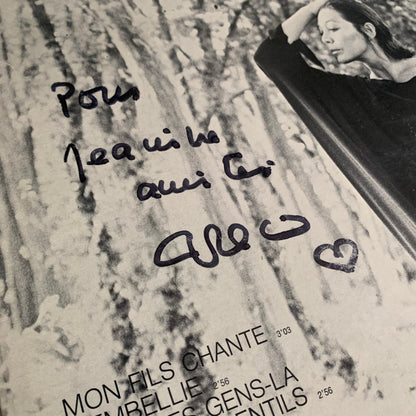 Pour
Jeanine
amitiés
Greco
MON FILS CHANTE 3'03
EMBELLIE 2'56
ES GENS-LA
ENTILS 2'56